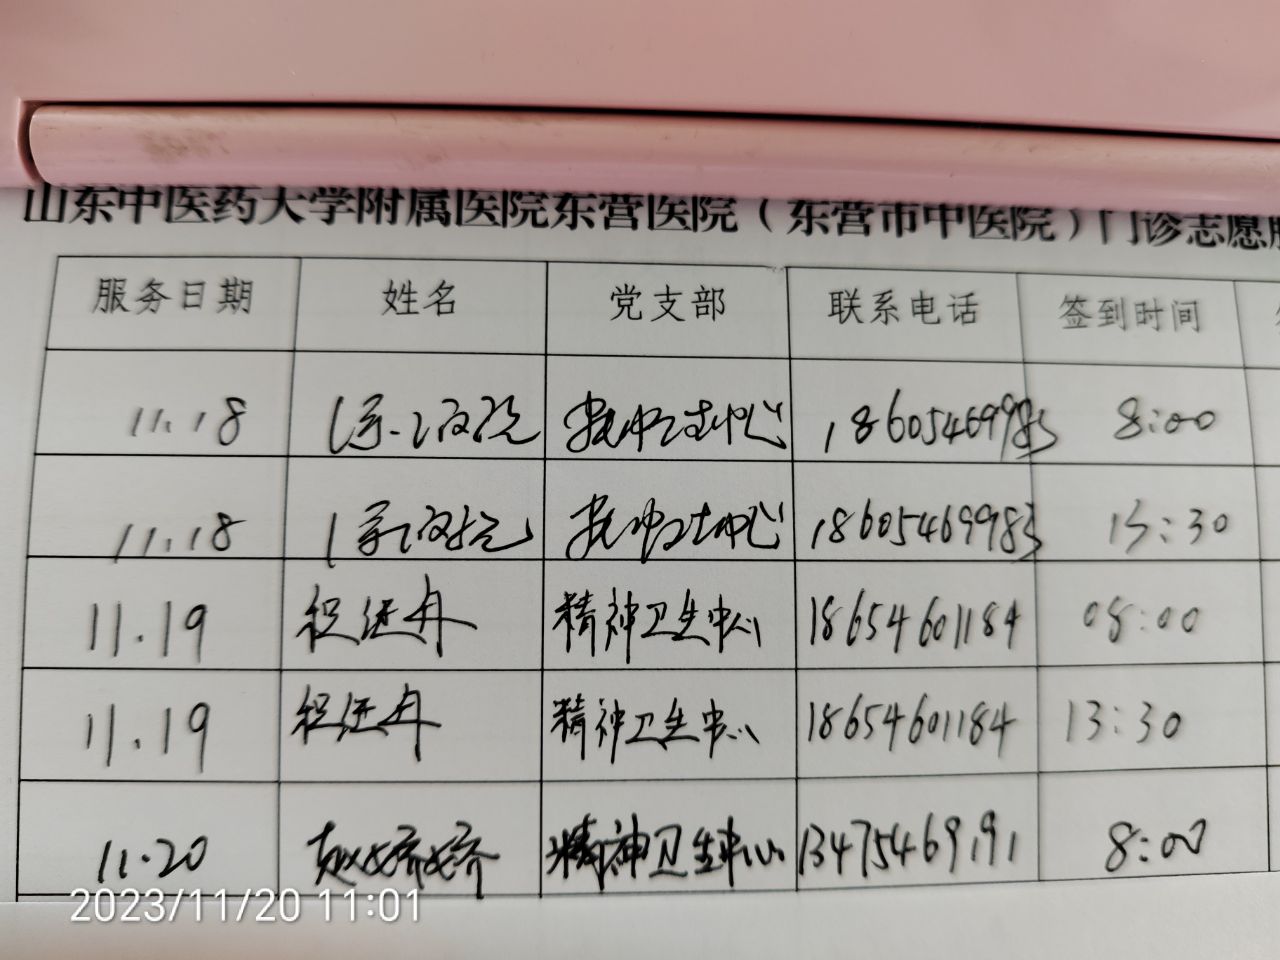 山东中医药大学附属医院东营医院（东营市中医院）门诊志愿服
服务日期 姓名 党支部 联系电话 签到时间
11.18 18605469983 8:00
11.18 18605469983 13:30
11.19 程进丹 精神卫生中心 18654601184 08:00
11.19 程进丹 精神卫生中心 18654601184 13:30
11.20 赵婷婷 精神卫生中心 13475469191 8:00
2023/11/20 11:01